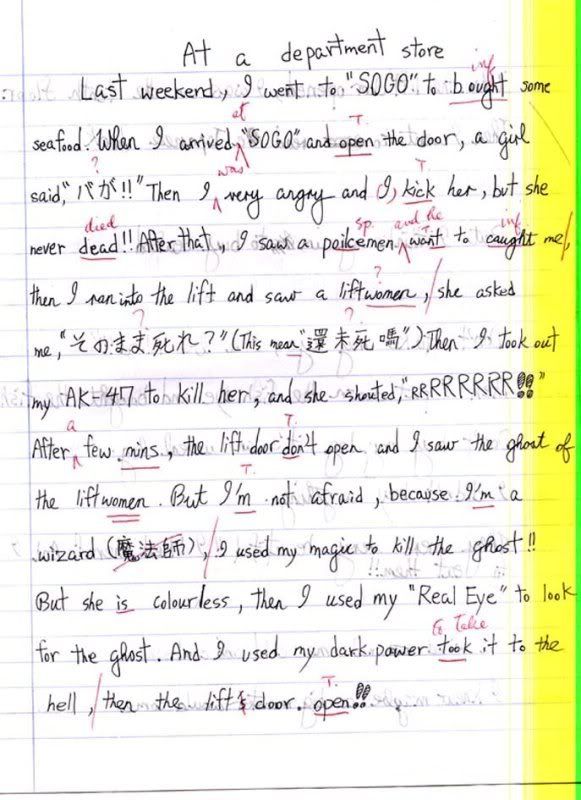 At a department store
inf
Last weekend, I went to "SOGO" to bought some
at T.
seafood. When I arrived "SOGO" and open the door, a girl
? was T.
said, "バが!!" Then I very angry and I kick her, but she
died sp. and he inf
never dead!! After that, I saw a poilcemen want to caught me,
?
then I ran into the lift and saw a liftwomen, she asked
?
me, "そのまま死れ?" (This mean "還未死嗎") Then I took out
my AK-47 to kill her, and she shouted, "RRRRRRRRR!!"
a T.
After few mins, the lift door don't open and I saw the ghost of
T.
the liftwomen. But I'm not afraid, because I'm a
wizard (魔法師), I used my magic to kill the ghost!!
But she is colourless, then I used my "Real Eye" to look
to take
for the ghost. And I used my dark power took it to the
T.
hell, then the lift's door. open!!